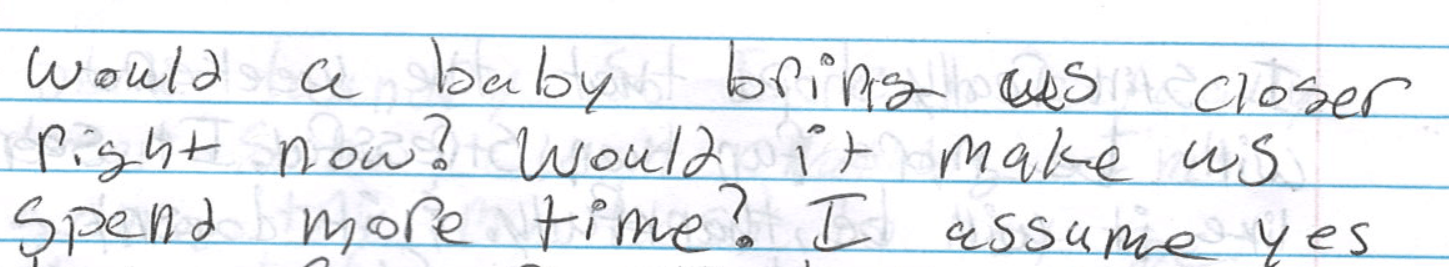 Would a baby bring us closer
right now? Would it make us
spend more time? I assume yes